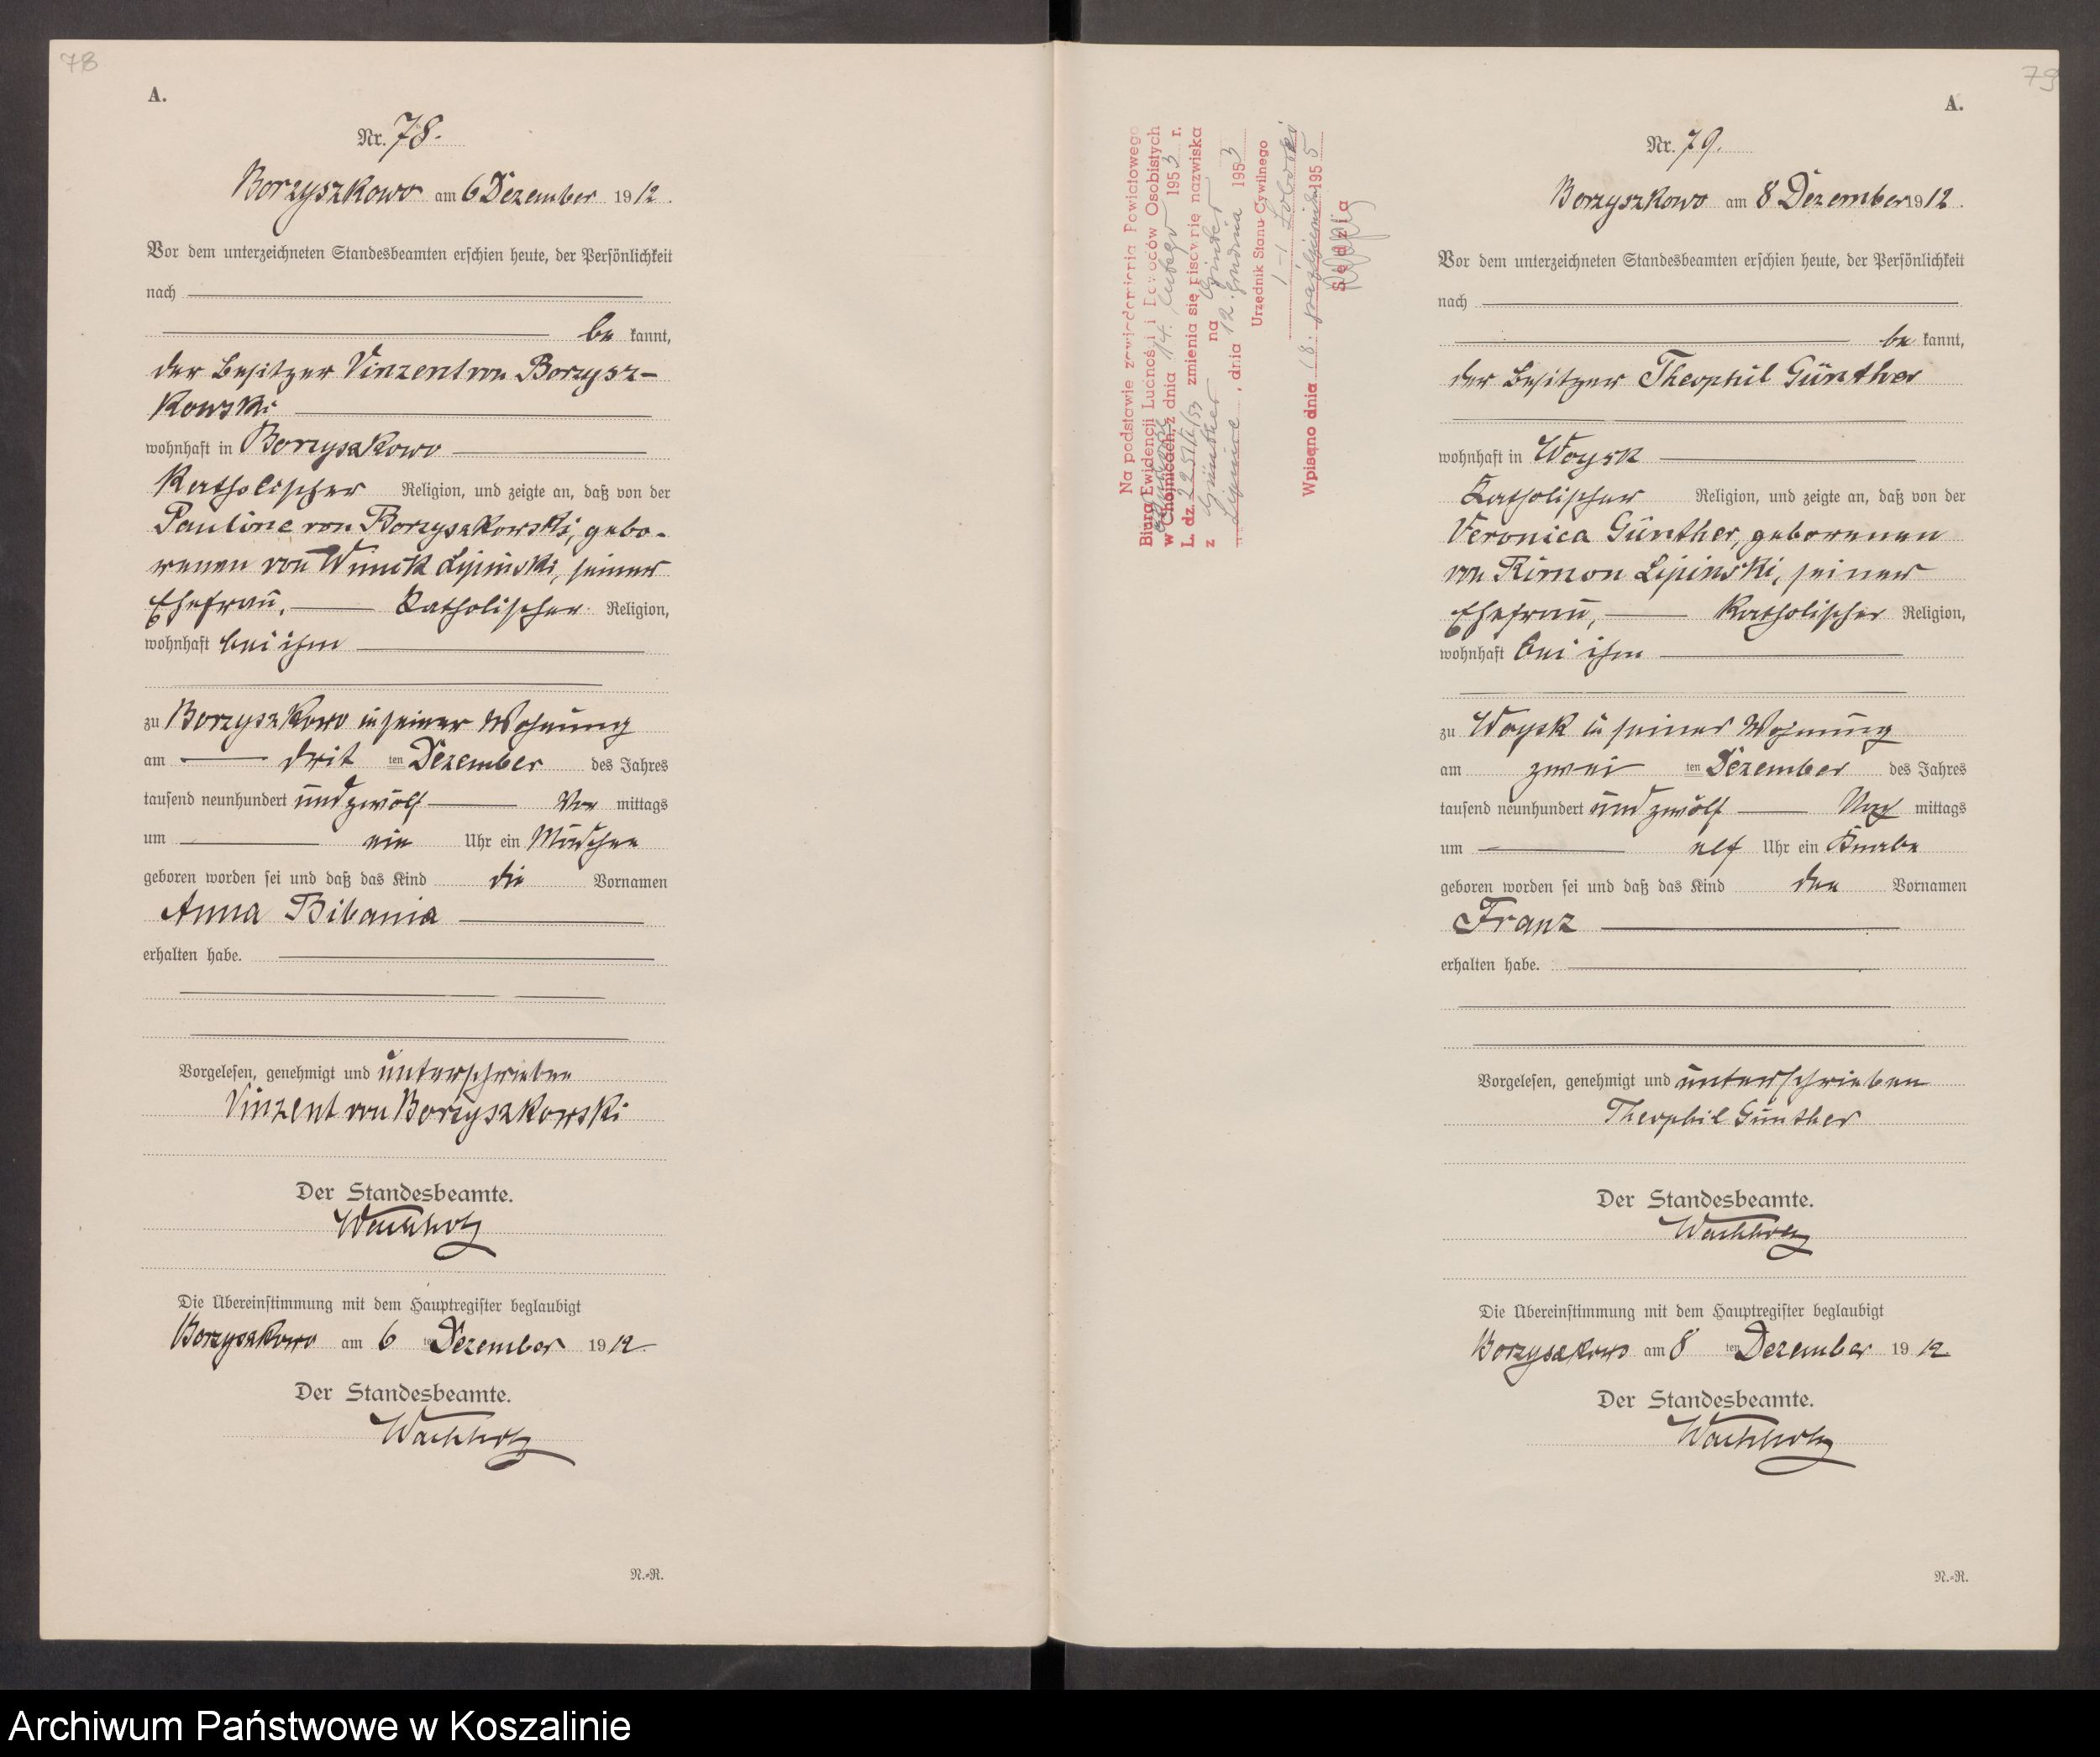 78
A.
Nr. 78.
Borzyszkowo am 6 Dezember 1912.
Vor dem unterzeichneten Standesbeamten erschien heute, der Persönlichkeit
nach
be kannt,
der Besitzer Vinzent von Borzysz-
kowski
wohnhaft in Borzyszkowo
katholischer Religion, und zeigte an, daß von der
Pauline von Borzyszkowski, gebo-
renen von Wnuck Lipinski, seiner
Ehefrau, katholischer Religion,
wohnhaft bei ihm
zu Borzyszkowo in seiner Wohnung
am drit ten Dezember des Jahres
tausend neunhundert und zwölf Vor mittags
um ein Uhr ein Mädchen
geboren worden sei und daß das Kind die Vornamen
Anna Bibania
erhalten habe.
Vorgelesen, genehmigt und unterschrieben
Vinzent von Borzyszkowski
Der Standesbeamte.
Wachholz
Die Übereinstimmung mit dem Hauptregister beglaubigt
Borzyszkowo am 6 ten Dezember 1912
Der Standesbeamte.
Wachholz
N.-R.
79
A.
Nr. 79.
Borzyszkowo am 8 Dezember 1912.
Vor dem unterzeichneten Standesbeamten erschien heute, der Persönlichkeit
nach
be kannt,
der Besitzer Theophil Günther
wohnhaft in Woysk
katholischer Religion, und zeigte an, daß von der
Veronica Günther, geborenen
von Rimon Lipinski, seiner
Ehefrau, katholischer Religion,
wohnhaft bei ihm
zu Woysk in seiner Wohnung
am zwei ten Dezember des Jahres
tausend neunhundert und zwölf mittags
um elf Uhr ein Knabe
geboren worden sei und daß das Kind den Vornamen
Franz
erhalten habe.
Vorgelesen, genehmigt und unterschrieben
Theophil Günther
Der Standesbeamte.
Wachholz
Die Übereinstimmung mit dem Hauptregister beglaubigt
Borzyszkowo am 8 ten Dezember 1912
Der Standesbeamte.
Wachholz
N.-R.
Na podstawie zawiadomienia Powiatowego
Biura Ewidencji Ludności i Dowodów Osobistych
w Chojnicach, z dnia 14. lutego 1953 r.
L. dz. zmienia się pisownię nazwiska
z Günther na Ginter
Lipnica, dnia 12. grudnia 1953
Urzędnik Stanu Cywilnego
Wpisano dnia 18. października 1955
Sędzia
Archiwum Państwowe w Koszalinie